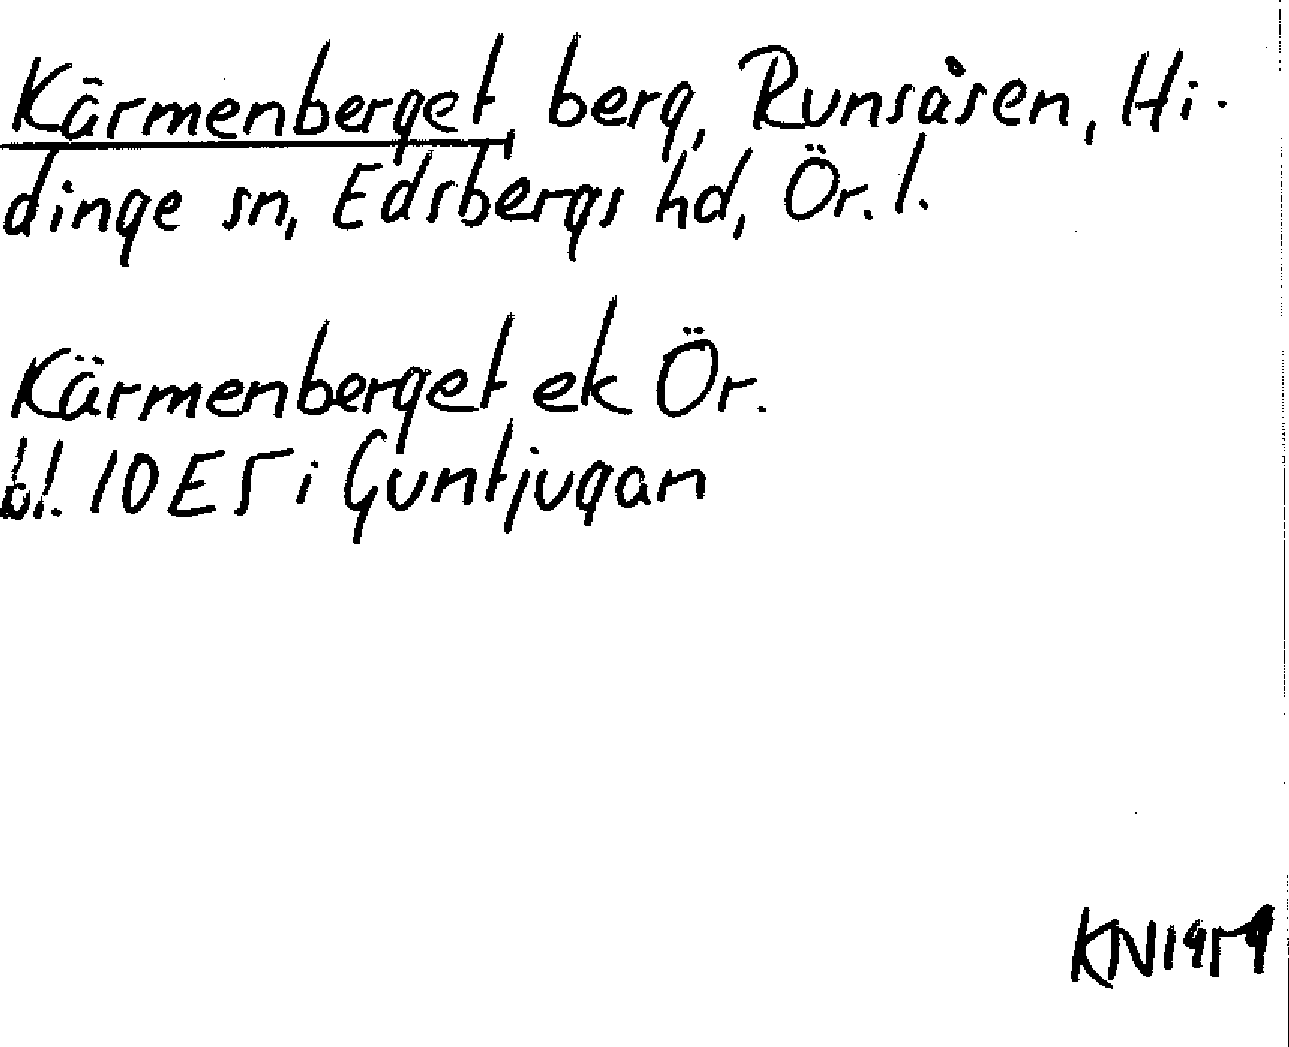 Kärmenberget, berg, Runsåsen, Hi-
dinge sn, Edsbergs hd, Ör. l.
Kärmenberget ek Ör.
bl. 10E5 i Guntjugan
KN 1959